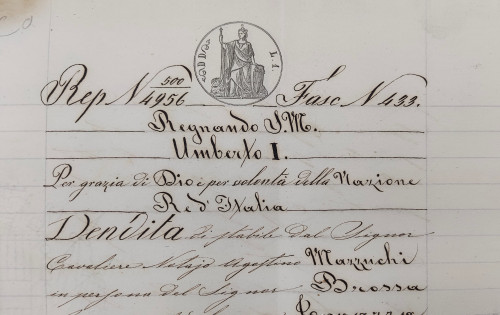 Rep N 500/4956 Fasc N 433.
Regnando S. M.
Umberto I.
Per grazia di Dio e per volontà della Nazione
Re d'Italia
Vendita di stabile dal Signor
Cavaliere Notajo Agostino Mazzuchi
in persona del Signor Brossa